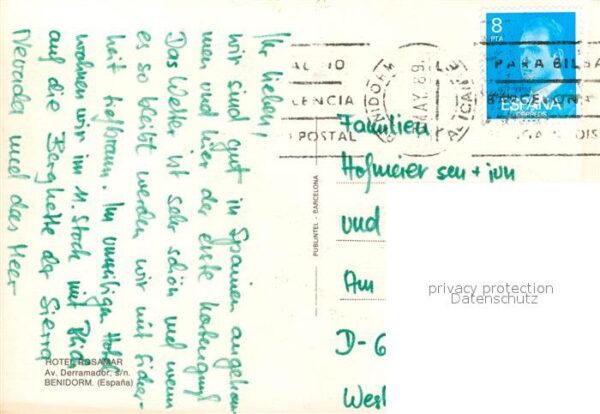 Ihr Lieben,
wir sind gut in Spanien angekom
men und hier der erste Kartengruß
Das Wetter ist sehr schön und wenn
es so bleibt werden wir mit Sicher-
heit tiefbraun. Im Hotel
wohnen wir im 11. Stock mit Blick
auf die Bergkette der Sierra
Nevada und das Meer
HOTEL ROSAMAR
Av. Derramador, s/n.
BENIDORM. (España)
PUBLINTEL - BARCELONA
8
PTA
ESPAÑA
CORREOS
BENIDORM
MAY. 89
ALICANTE
PARA BILBA
LENCIA
BARCELONA
POSTAL
Familien
Hofmeier sen + jun
und
Am
D-6
West
privacy protection
Datenschutz